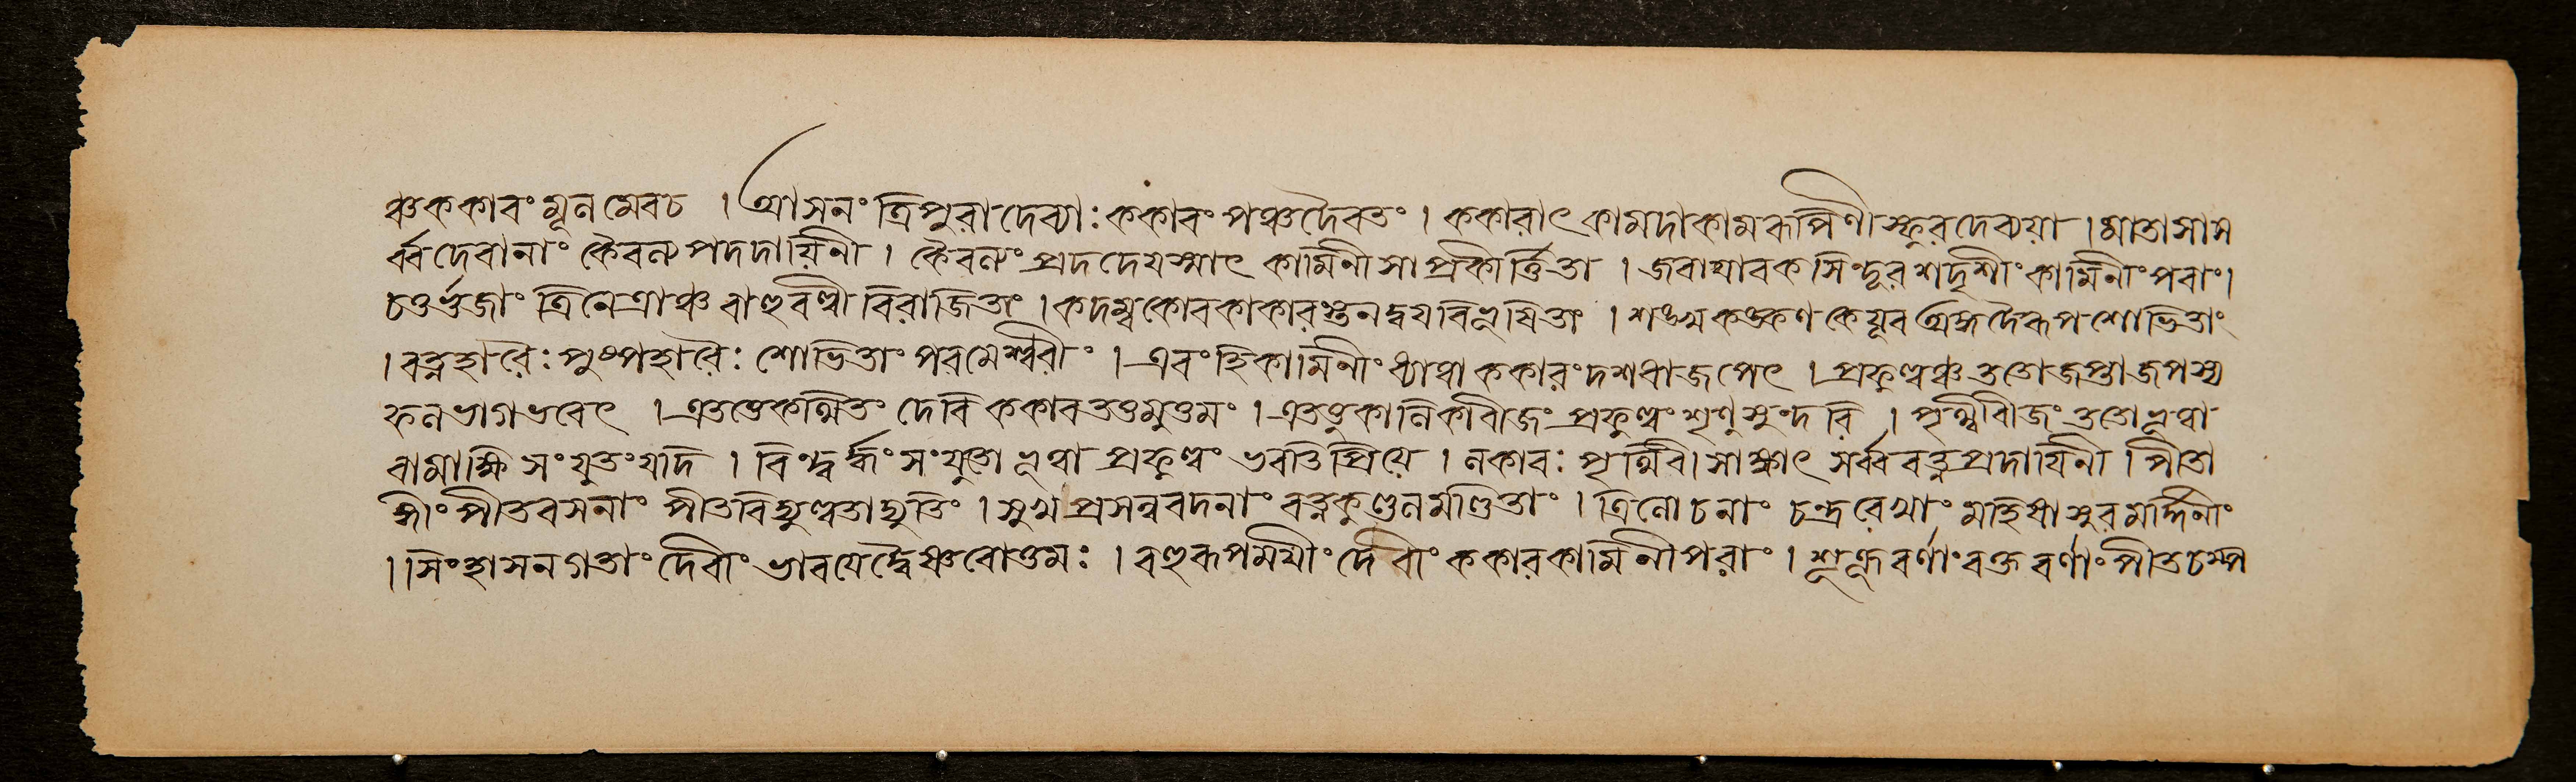 ঞ্চককারং মূলমেবচ । আসনং ত্রিপুরাদেব্যাঃ ককারং পঞ্চদৈবতং । ককারাৎ কামদাকামরূপিণীস্ফুরদব্যয়া । মাতাসাস
র্ব্বদেবানাং কৈবল্যপদদায়িনী । কৈবল্যং প্রদদেযস্মাৎ কামিনীসাপ্রকীর্ত্তিতা । জবাযাবকসিংদূরশদৃশীং কামিনীংপরাং ।
চতুর্ভুজাং ত্রিনেত্রাঞ্চ বাহুবল্লীবিরাজিতাং । কদম্বকোরকাকারস্তনদ্বয়বিভূষিতাং । শঙ্খকঙ্কণকেয়ূর অঙ্গদৈরূপশোভিতাং
। রত্নহারৈঃ পুষ্পহারৈঃ শোভিতাং পরমেশ্বরীং । এবংহিকামিনীং ধ্যাত্বা ককারংদশধাজপেৎ । প্রফুল্লঞ্চ ততোজপ্তাজপস্য
ফলভাগভবেৎ । এতত্তেকথিতং দেবি ককারতত্ত্বমুত্তমং । এতত্তুকালিকাবীজং প্রফুল্লং শৃণুসুংদরি । পৃথ্বীবীজং ততোভূত্বা
বামাক্ষি সংযুতংযদি । বিংদ্বর্দ্ধংসংযুতোভূত্বা প্রফুল্লং ভবতিপ্রিয়ে । লকারঃ পৃথিবীসাক্ষাৎ সর্ব্বরত্নপ্রদায়িনী । পীতা
ঙ্গীং পীতবসনাং পীতবিদ্যুল্লতাদ্যুতিং । সুখপ্রসন্নবদনাং রত্নকুণ্ডলমণ্ডিতাং । ত্রিলোচনাং চন্দ্ররেখাং মহিষাসুরমর্দ্দিনীং
। সিংহাসনগতাং দেবীং ভাবয়েদ্বৈষ্ণবোত্তমঃ । বহুরূপময়ীং দেবীং ককারকামিনীপরাং । শুক্লবর্ণাং রক্তবর্ণাং পীতচম্প